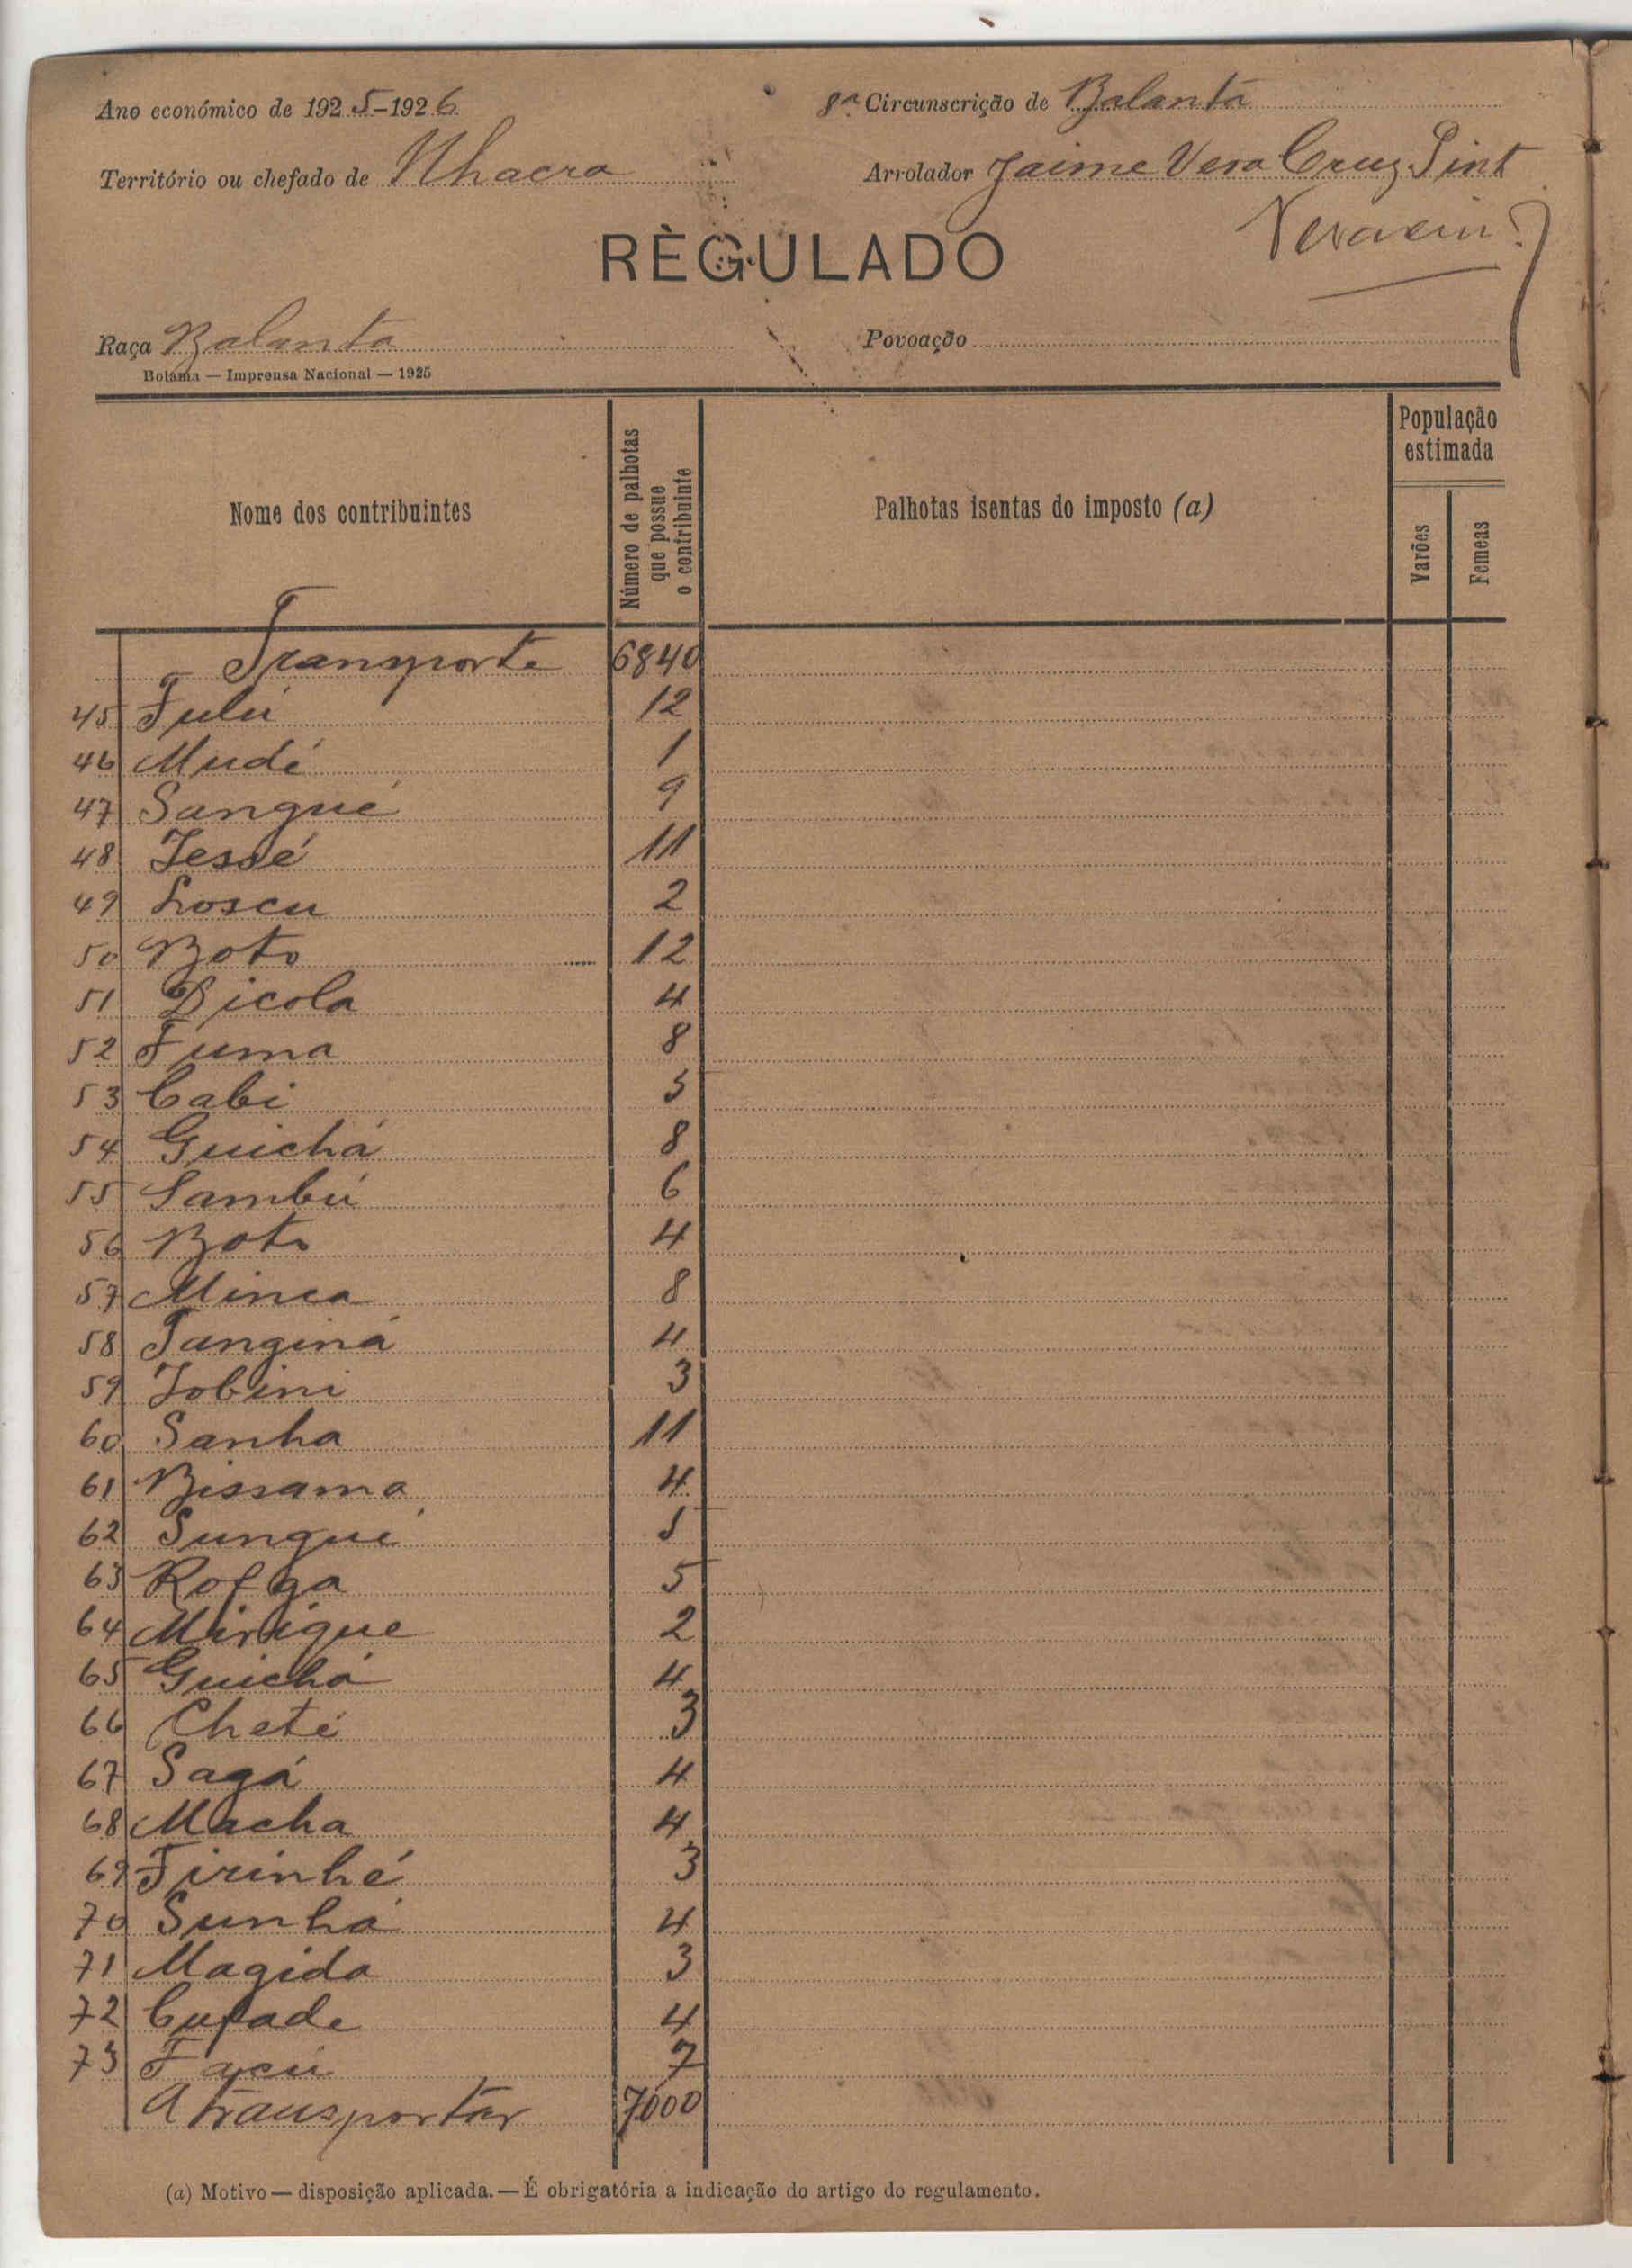 Ano económico de 1925-1926
8ª Circunscrição de Balanta
Território ou chefado de Nhacra
Arrolador Jaime Vera Cruz Pint
RÈGULADO
Raça Balanta
Povoação
Bolama — Imprensa Nacional — 1925
Nome dos contribuintes
Número de palhotas que possue o contribuinte
Palhotas isentas do imposto (a)
População estimada
Varões
Femeas
Transporte 6840
45 Fulú 12
46 Mudé 1
47 Sangué 9
48 Jessé 11
49 Loscu 2
50 Boto 12
51 Bicola 4
52 Fuma 8
53 Cabi 5
54 Guichá 8
55 Sambú 6
56 Boto 4
57 Minca 8
58 Tanginá 4
59 Jobini 3
60 Sanha 11
61 Bissama 4
62 Sungué 5
63 Rofga 5
64 Mirique 2
65 Guichá 4
66 Cheté 3
67 Sagá 4
68 Macha 4
69 Firinhé 3
70 Sunhá 4
71 Magida 3
72 Cufade 4
73 Façú 7
A transportar 7000
(a) Motivo — disposição aplicada. — É obrigatória a indicação do artigo do regulamento.